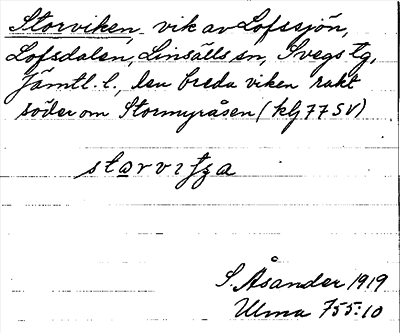 Storviken, vik av Lofssjön,
Lofsdalen, Linsälls sn, Svegs tg,
Jämtl. l., den breda viken rakt
söder om Stormyråsen (klj 77 SV)
S. Åsander 1919
Ulma 755:10